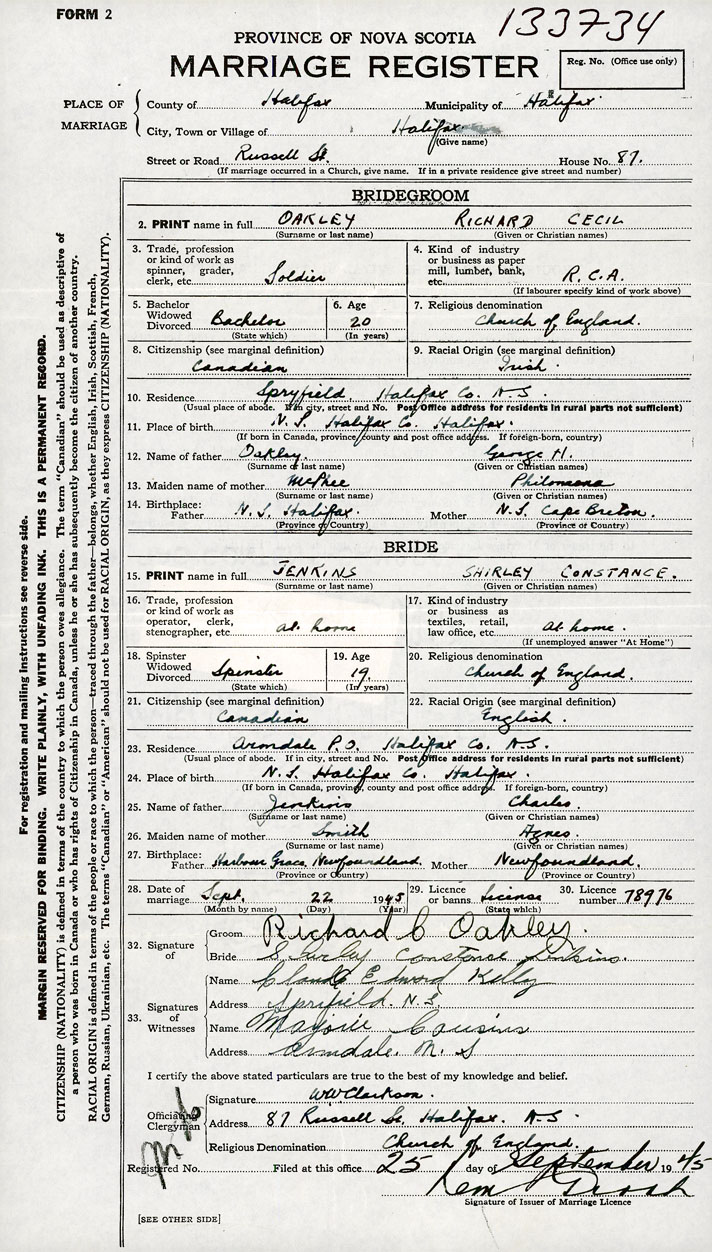 FORM 2
133734
PROVINCE OF NOVA SCOTIA
MARRIAGE REGISTER
Reg. No. (Office use only)
PLACE OF MARRIAGE
County of Halifax Municipality of Halifax
City, Town or Village of Halifax
(Give name)
Street or Road Russell St. House No. 87.
(If marriage occurred in a Church, give name. If in a private residence give street and number)
BRIDEGROOM
2. PRINT name in full OAKLEY RICHARD CECIL
(Surname or last name) (Given or Christian names)
3. Trade, profession or kind of work as spinner, grader, clerk, etc. Soldier
4. Kind of industry or business as paper mill, lumber, bank, etc. R.C.A.
(If labourer specify kind of work above)
5. Bachelor Widowed Divorced Bachelor
(State which)
6. Age 20
(In years)
7. Religious denomination
Church of England.
8. Citizenship (see marginal definition)
Canadian
9. Racial Origin (see marginal definition)
Irish.
10. Residence Spryfield, Halifax Co. N.S.
(Usual place of abode. If in city, street and No. Post Office address for residents in rural parts not sufficient)
11. Place of birth N.S. Halifax Co. Halifax.
(If born in Canada, province, county and post office address. If foreign-born, country)
12. Name of father Oakley. George H.
(Surname or last name) (Given or Christian names)
13. Maiden name of mother McPhee Philomena
(Surname or last name) (Given or Christian names)
14. Birthplace: Father N.S. Halifax. Mother N.S. Cape Breton.
(Province or Country) (Province or Country)
BRIDE
15. PRINT name in full JENKINS SHIRLEY CONSTANCE.
(Surname or last name) (Given or Christian names)
16. Trade, profession or kind of work as operator, clerk, stenographer, etc. at home
17. Kind of industry or business as textiles, retail, law office, etc. at home.
(If unemployed answer "At Home")
18. Spinster Widowed Divorced Spinster
(State which)
19. Age 19.
(In years)
20. Religious denomination
Church of England.
21. Citizenship (see marginal definition)
Canadian
22. Racial Origin (see marginal definition)
English.
23. Residence Armdale P.O. Halifax Co. N.S.
(Usual place of abode. If in city, street and No. Post Office address for residents in rural parts not sufficient)
24. Place of birth N.S. Halifax Co. Halifax.
(If born in Canada, province, county and post office address. If foreign-born, country)
25. Name of father Jenkins Charles.
(Surname or last name) (Given or Christian names)
26. Maiden name of mother Smith Agnes.
(Surname or last name) (Given or Christian names)
27. Birthplace: Father Harbour Grace, Newfoundland. Mother Newfoundland.
(Province or Country) (Province or Country)
28. Date of marriage Sept. 22 1945
(Month by name) (Day) (Year)
29. Licence or banns License
(State which)
30. Licence number 78976
32. Signature of
Groom Richard C Oakley.
Bride Shirley Constance Jenkins.
33. Signatures of Witnesses
Name Claude Edward Kelly
Address Spryfield. N.S.
Name Marjorie Cousins
Address Armdale. N.S
I certify the above stated particulars are true to the best of my knowledge and belief.
Officiating Clergyman
Signature WW Clarkson.
Address 87 Russell St. Halifax. N.S.
Religious Denomination Church of England.
Registered No. Filed at this office 25 day of September 1945
Signature of Issuer of Marriage Licence
[SEE OTHER SIDE]
For registration and mailing instructions see reverse side.
MARGIN RESERVED FOR BINDING. WRITE PLAINLY, WITH UNFADING INK. THIS IS A PERMANENT RECORD.
CITIZENSHIP (NATIONALITY) is defined in terms of the country to which the person owes allegiance. The term "Canadian" should be used as descriptive of
a person who was born in Canada or who has rights of Citizenship in Canada, unless he or she has subsequently become the citizen of another country.
RACIAL ORIGIN is defined in terms of the people or race to which the person—traced through the father—belongs, whether English, Irish, Scottish, French,
German, Russian, Ukrainian, etc. The terms "Canadian" or "American" should not be used for RACIAL ORIGIN, as they express CITIZENSHIP (NATIONALITY).